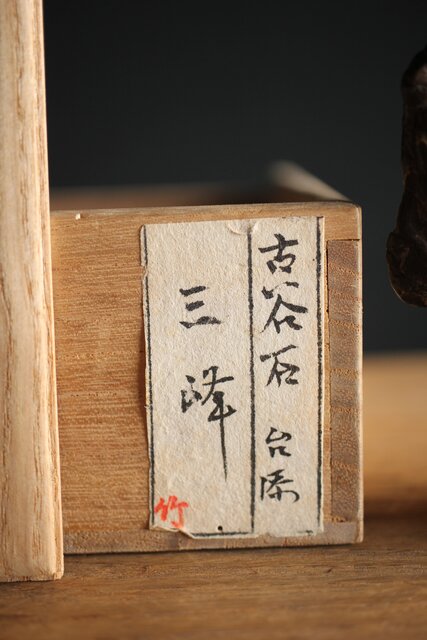 古谷石 台添
三峰
竹